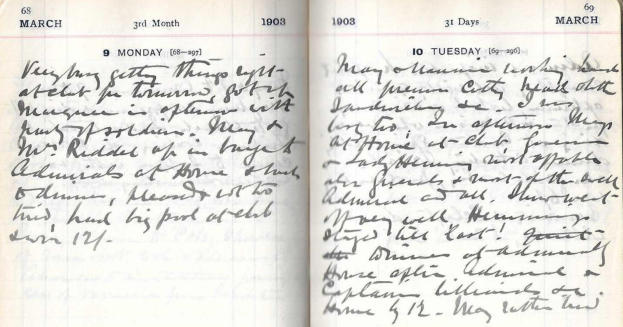 68
MARCH 3rd Month 1903
9 MONDAY [68—297]
Very busy getting things right
at club for tomorrow, got up
Marquee in afternoon with
party of soldiers. May &
Mrs Riddel up in barge to
Admirals at Home & back
to dinner, pleased & not too
tired, had big pool at club
& won 12/-
69
1903 31 Days MARCH
10 TUESDAY [69—296]
May & working hard
all
Sandwiches &c. I was
busy too. In afternoon Mays
At Home at club. Governor
& Lady Hemming most affable
also Generals & most of the
Admiral and all. Show went
off very well Hemmings
stayed till last! Quiet
Dinner at Admiralty
House after Admiral &
Captain billiards &c.
Home by 12. May rather tired